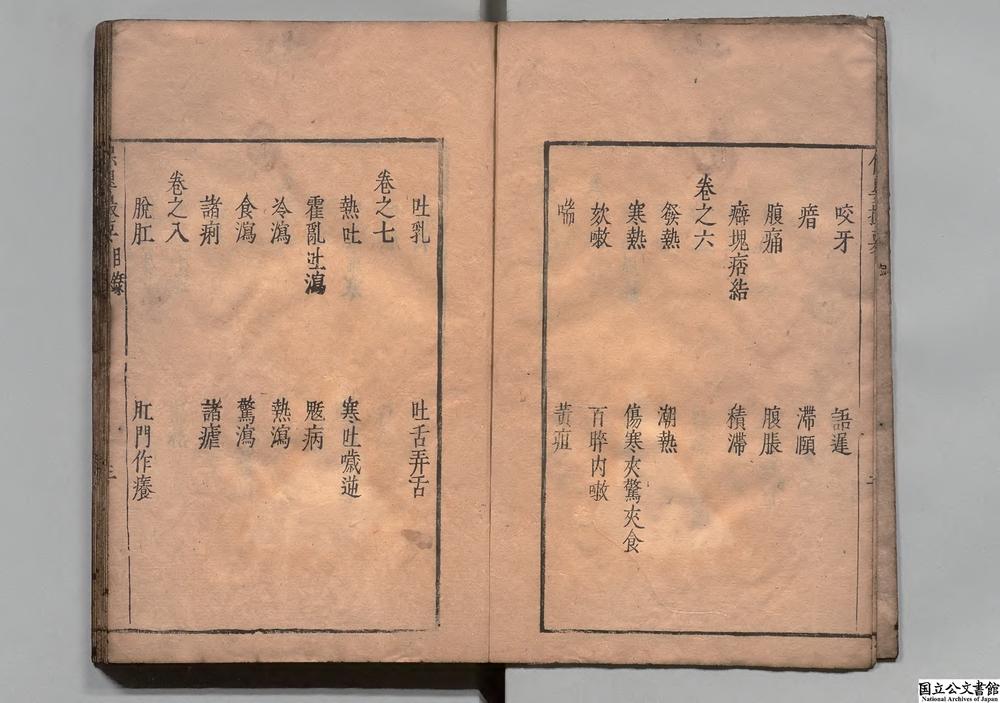 咬牙 語遲
瘖 滯頤
腹痛 腹脹
癖塊痞結 積滯
卷之六
發熱 潮熱
寒熱 傷寒夾驚夾食
欬嗽 百晬內嗽
喘 黃疸
吐乳 吐舌弄舌
卷之七
熱吐 寒吐噦逆
霍亂吐瀉 慝病
冷瀉 熱瀉
食瀉 驚瀉
諸痢 諸瘧
卷之八
脫肛 肛門作癢
目錄
国立公文書館
National Archives of Japan